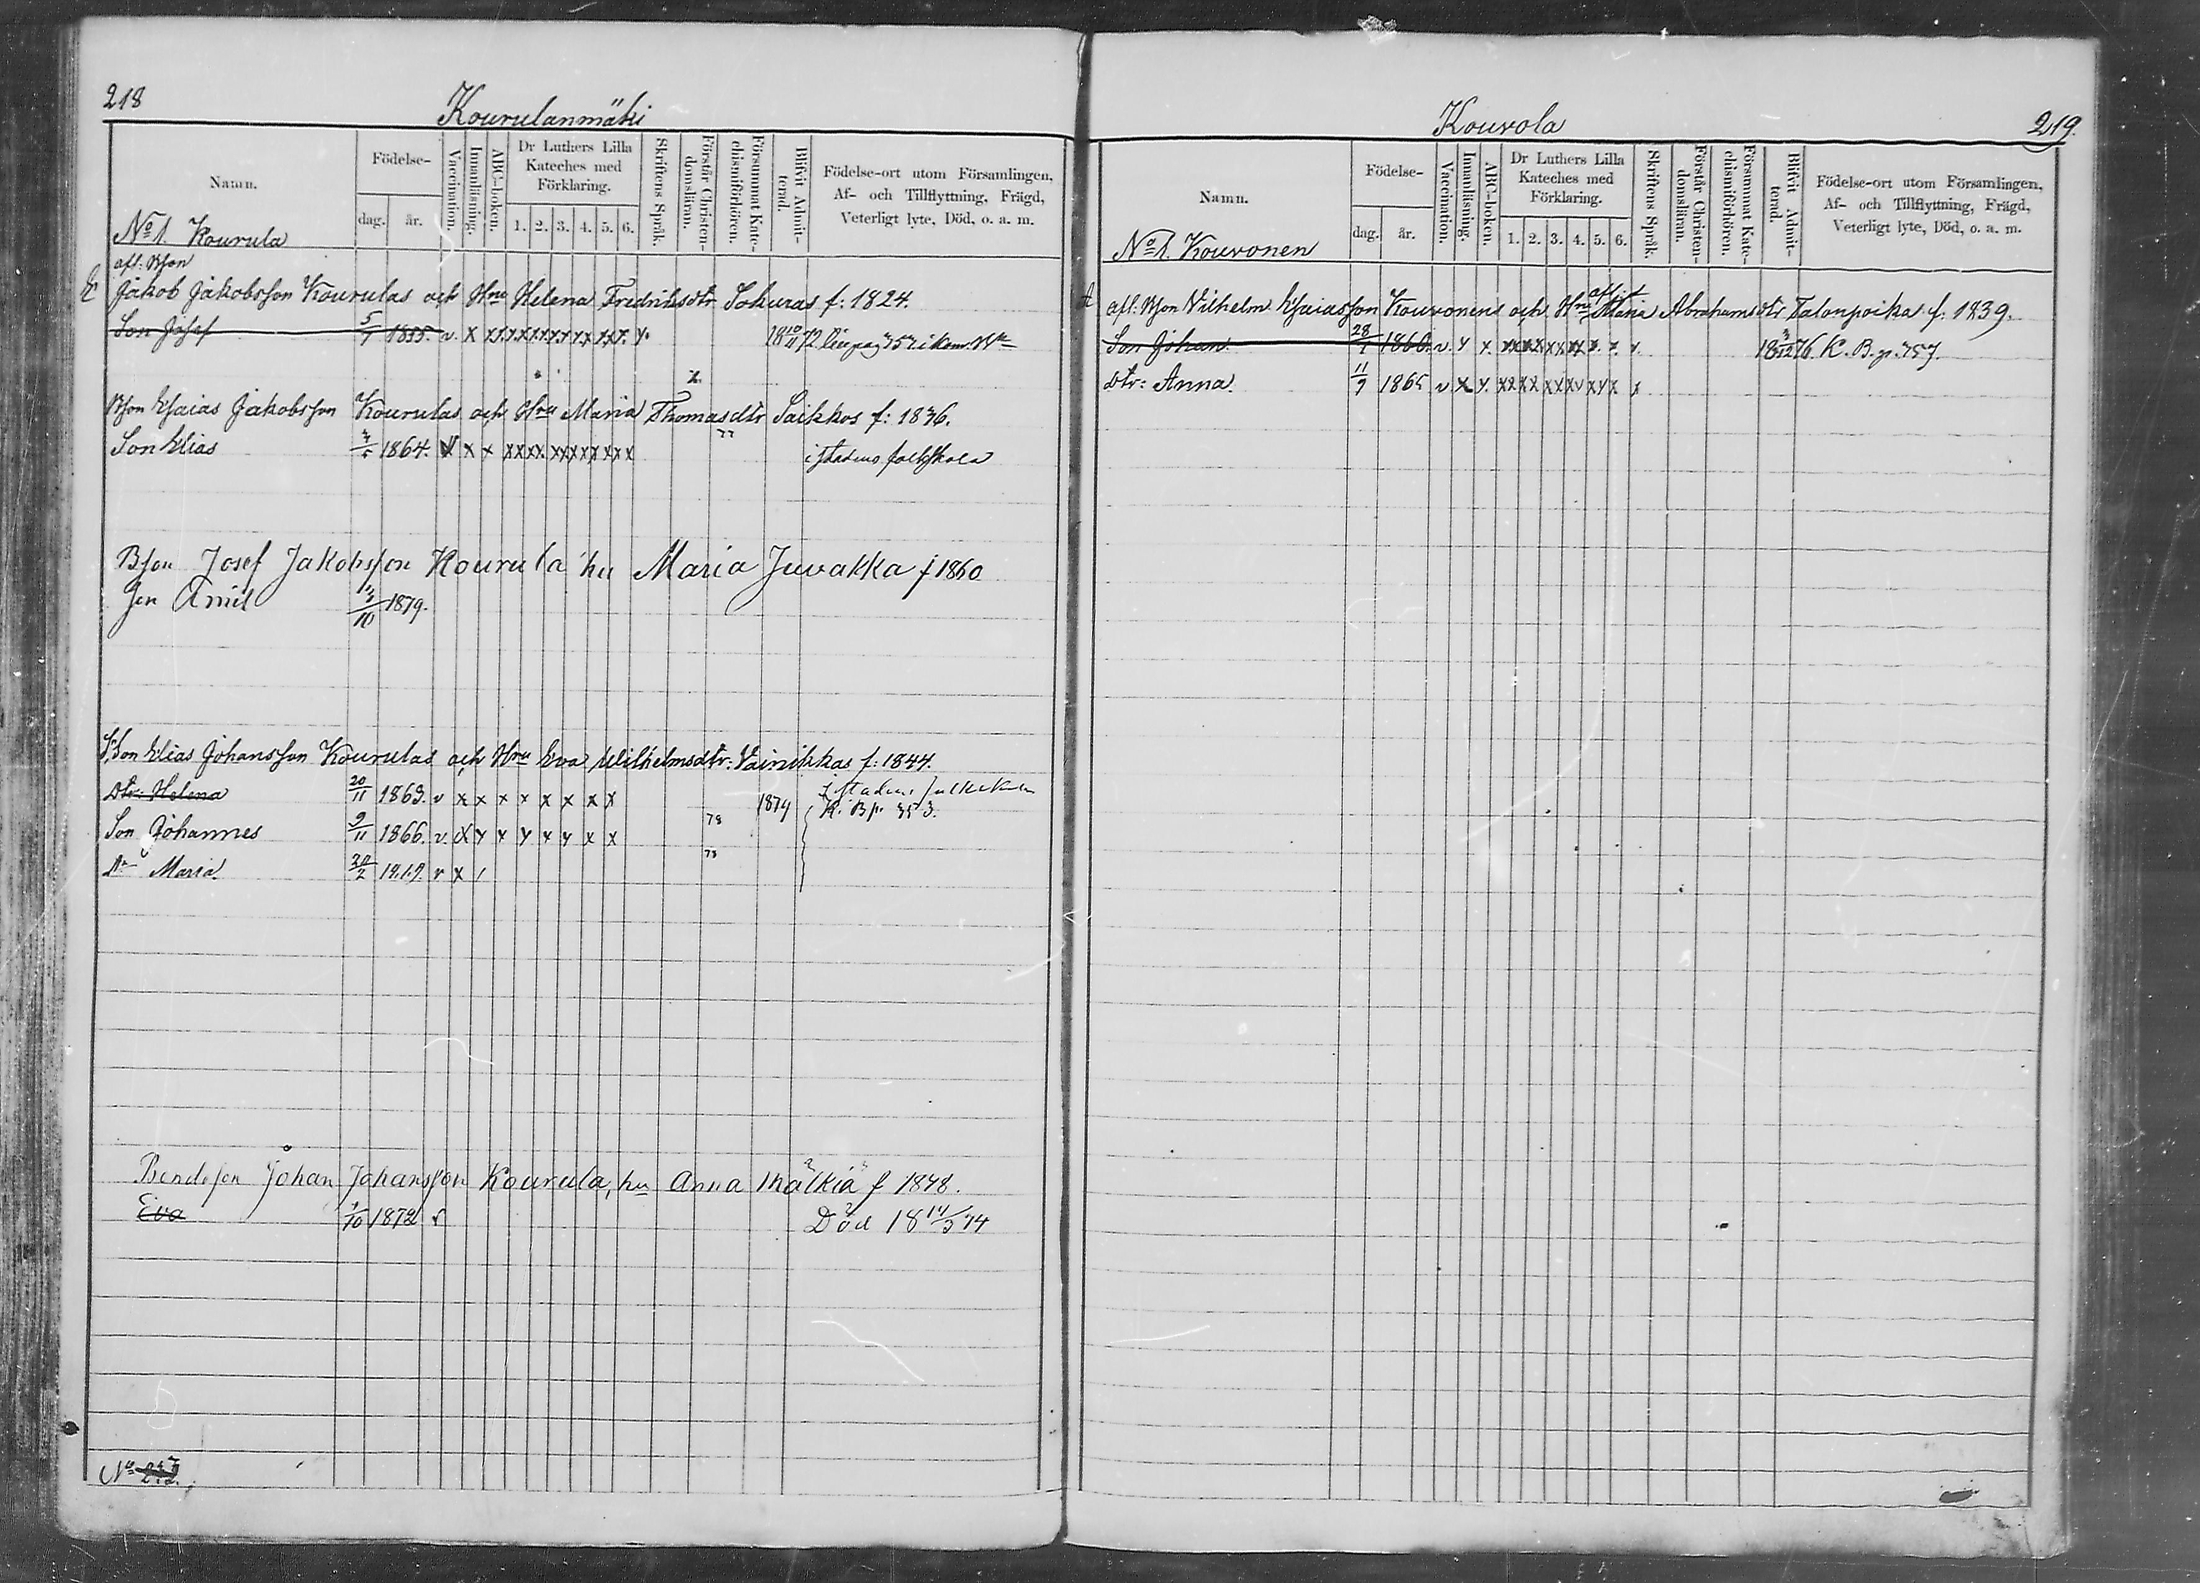 218
Kourulanmäki
Namn.
Födelse-
dag.
år.
Vaccination.
Innanläsning.
ABC-boken.
Dr Luthers Lilla Kateches med Förklaring.
1. 2. 3. 4. 5. 6.
Skriftens Språk.
Förstår Christendomsläran.
Försummat Katechismiförhören.
Blifvit Admitterad.
Födelse-ort utom Församlingen,
Af- och Tillflyttning, Frägd,
Veterligt lyte, Död, o. a. m.
No 1. Kourula
afl: Bson
Jakob Jakobsson Kourulas och Hru Helena Fredriksdtr Sokuras f: 1824.
Son Josef 5/1 1855. v. x 18 10/11 72
Bson Esaias Jakobsson Kourulas och Hru Maria Thomasdtr Saikkos f: 1836.
Son Elias 1864. x x x i stadens folkskola
Bson Josef Jakobsson Kourula hu Maria Juvakka f 1860
Son Amil 13/10 1879.
Bson Elias Johansson Kourulas och Hru Eva Wilhelmsdtr: Vainikkas f: 1844.
Dtr: Helena 20/11 1863. v x x x x x x x x 1879 i stadens folkskola
K. B. p. 353.
Son Johannes 9/11 1866. v. x x x x x x x x 78
Dr Maria 20/2 v x 78
Bondeson Johan Johansson Kourula, hu Anna Mälkiä f 1848.
Eva 1/10 1872 v Död 18 14/3 74
No
Kouvola
219.
Namn.
Födelse-
dag.
år.
Vaccination.
Innanläsning.
ABC-boken.
Dr Luthers Lilla Kateches med Förklaring.
1. 2. 3. 4. 5. 6.
Skriftens Språk.
Förstår Christendomsläran.
Försummat Katechismiförhören.
Blifvit Admitterad.
Födelse-ort utom Församlingen,
Af- och Tillflyttning, Frägd,
Veterligt lyte, Död, o. a. m.
No 1. Kouvonen
afl:
afl: Bson Vilhelm Esaiasson Kouvonens och Hru Maria Abrahamsdtr Talonpoika f: 1839.
Son Johan 28/1 1860. v. x x. 18 3/12 76 K. B. p. 357.
dtr: Anna 11/9 1865 v x x.